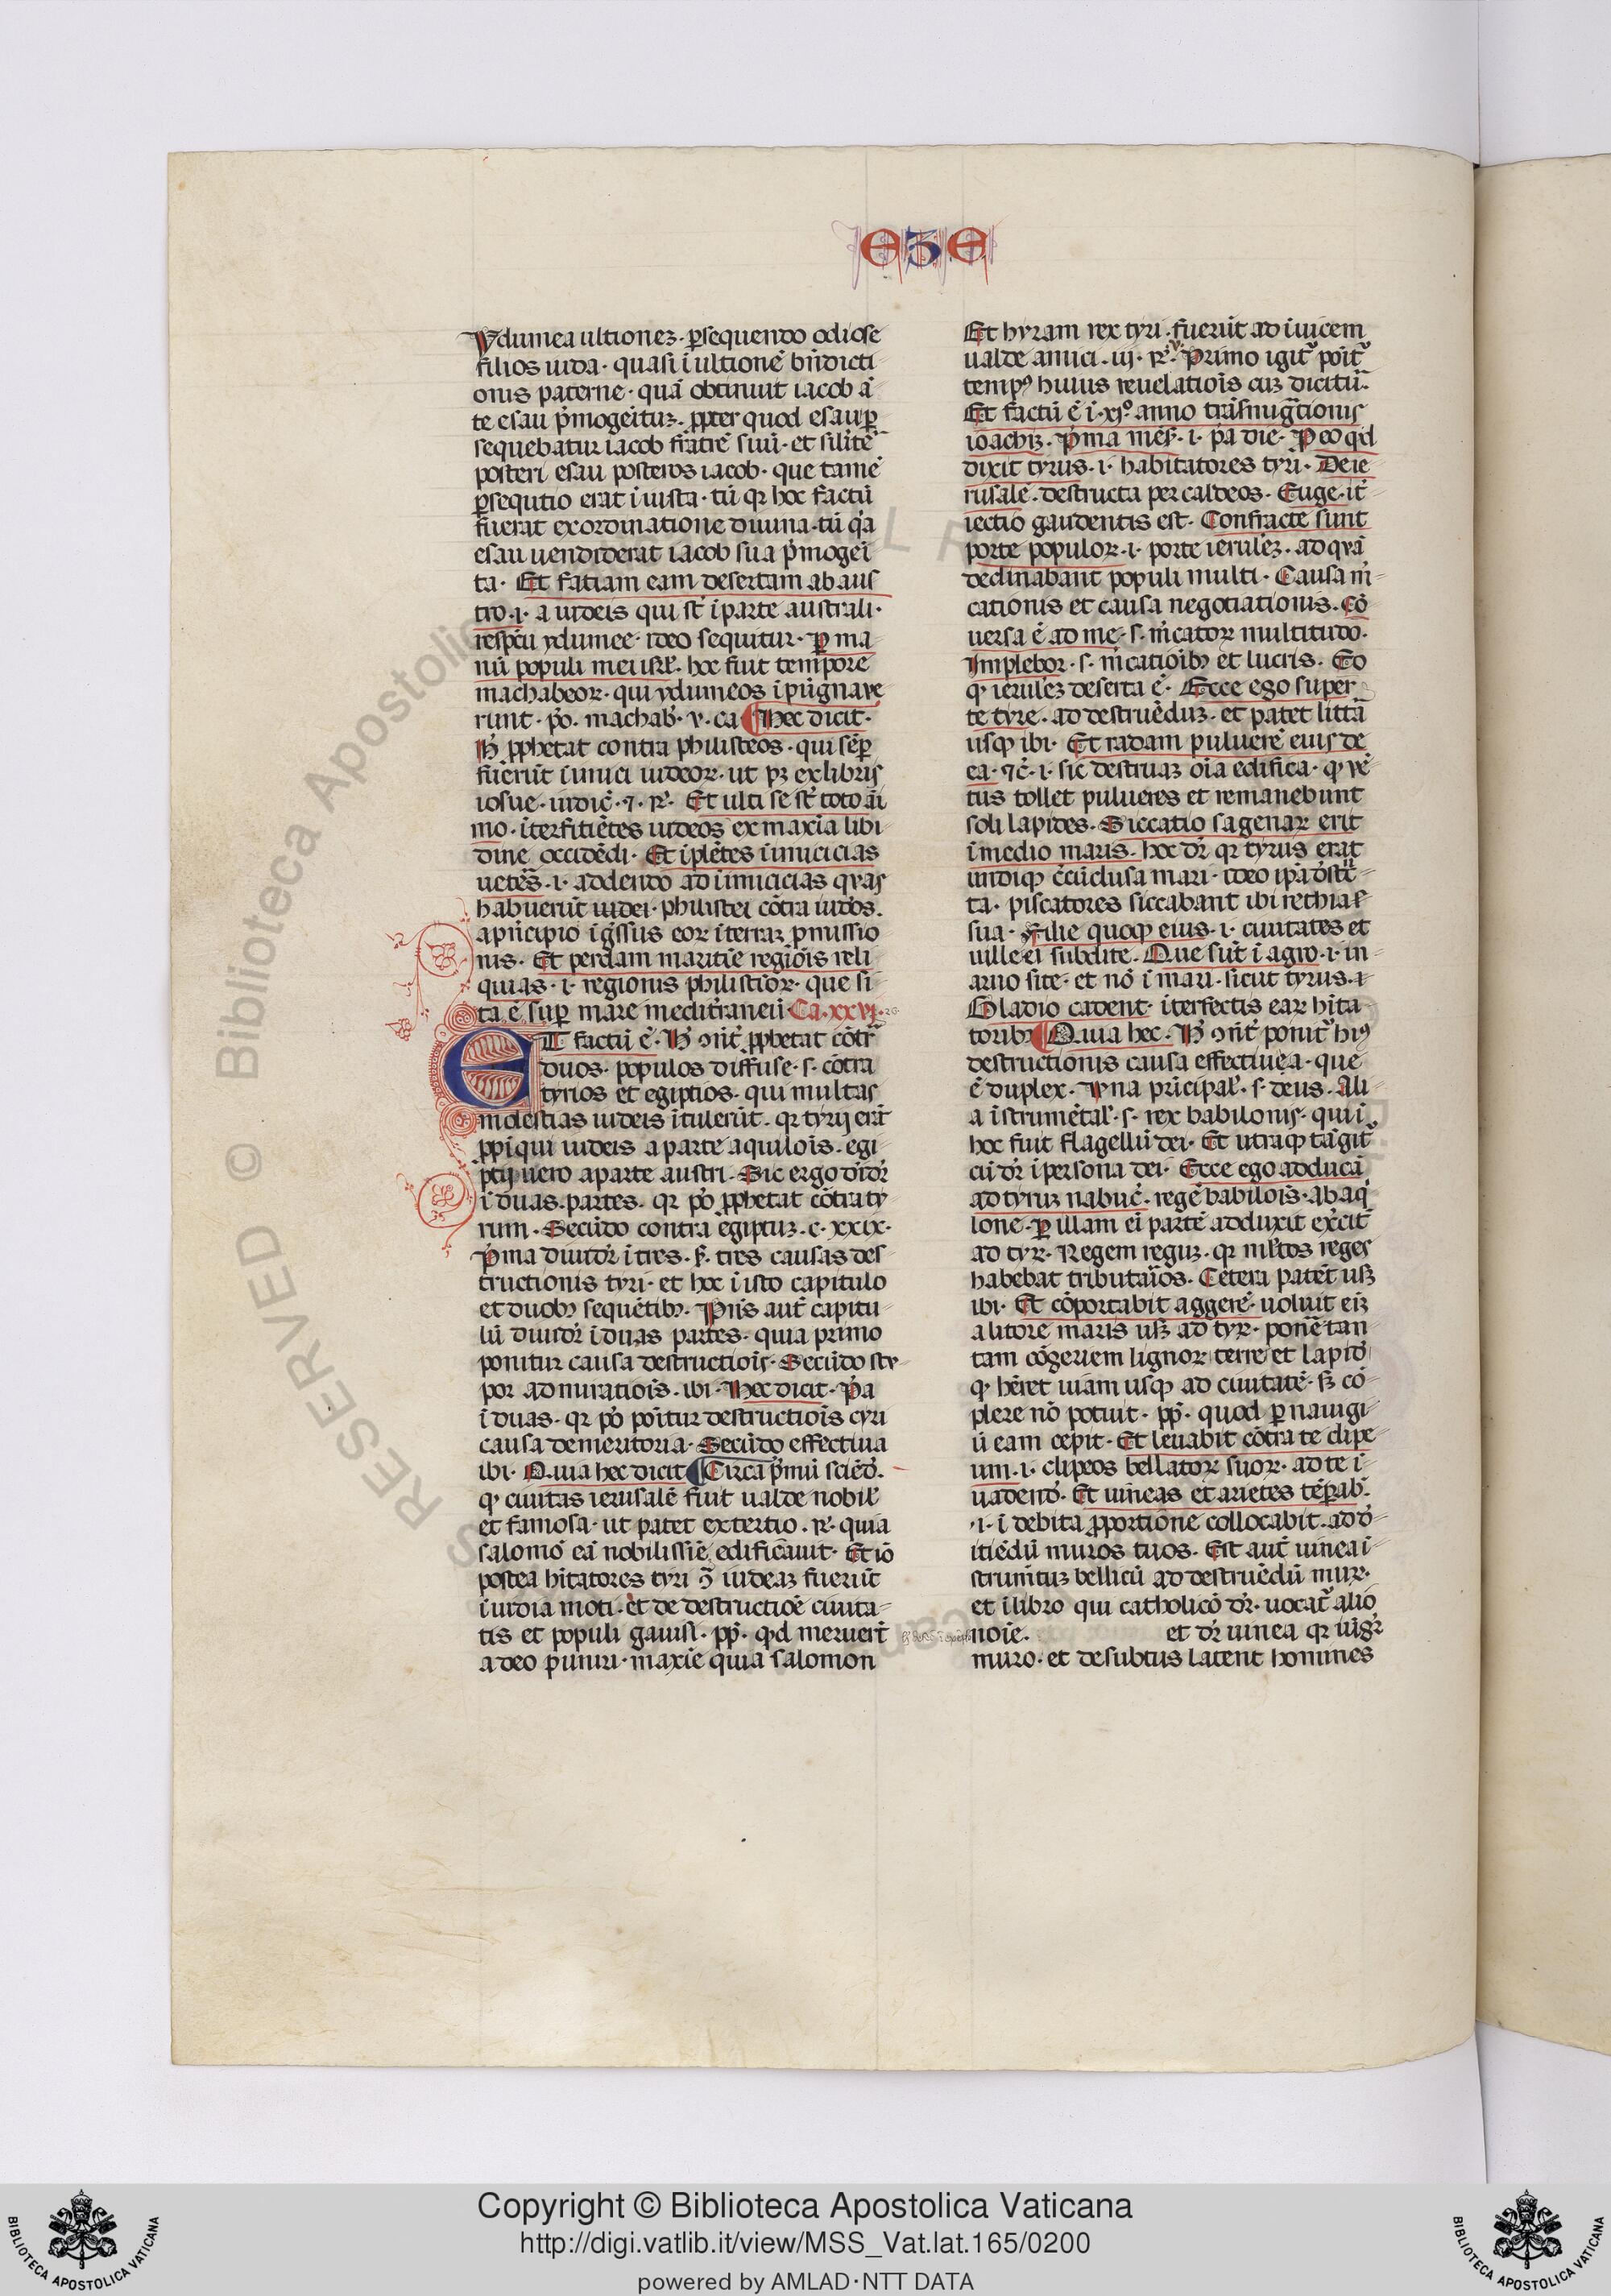 EZE
ydumea ultionez · ꝑsequendo odiose
filios iuda · quasi ī ultionē bn̄dicti
onis paterne · quā obtinuit iacob ā
te esau pͥmogeītuꝫ · ꝓpter quod esau ꝑ
sequebatur iacob fratrē suū · et silit̄
posteri esau posteros iacob · que tamē
ꝑsequtio erat iniusta · tū qꝛ hoc factū
fuerat ex ordinatione diuina · tū qͥa
esau uendiderat iacob sua pͥmogeī
ta · Et fatiam eam desertam ab aus
tro · i · a iudeis qui st̄ ī parte australi ·
respc̄u ydumee · ideo sequitur · Ꝑ ma
nū populi mei isrl̄ · hoc fuit tempore
machabeoꝝ · qui ydumeos īpugnaue
runt · pͦ · machab̄ · v · ca ¶ Hec dicit ·
H̄ ꝓphetat contra philisteos · qui sēꝑ
fuerūt inimici iudeoꝝ · ut pꝫ ex libris
iosue · iudic̄ · ⁊ · R̄ · Et ulti se st̄ toto ai
mo · īterfitiētes iudeos ex maxīa libi
dine occidēdi · Et īplētes inimicicias
uetes̄ · i · addendo ad inimicicias quas
habuerūt iudei · philistei cōtra iud̄os ·
a pͥncipio īgssus eoꝝ ī terraꝫ ꝓmissio
nis · Et perdam maritīe regiōis reli
quias · i · regionis philistioꝝ · que si
ta ē suꝑ mare meditraneū Ca · xxvj · 26
ET factū ē · H̄ ꝯn̄t ꝓphetat cōtr̄
duos · populos diffuse · s · cōtra
tyrios et egiptios · qui multas
molestias iudeis ītulerūt · qꝛ tyrij erāt
ꝓpīqui iudeis a parte aquilōis · egi
ptij uero a parte austri · Sic ergo diuidr̄
ī duas · partes · qꝛ pͦ ꝓphetat cōtra ty
rum · Secūdo contra egiptuꝫ · c · xxix ·
Pͥma diuidr̄ ī tres · s · tres causas des
tructionis tyri · et hoc ī isto capitulo
et duobꝫ sequētibꝫ · Pn̄s aut̄ capitu
lū diuidr̄ ī duas partes · quia primo
ponitur causa destructiōis · Secūdo stu
por admiratiōis · ibi · Hec dicit · Pͥa
ī duas · qꝛ pͦ poītur destructiōis tyri
causa demeritoria · Secūdo effectiua
ibi · Quia hec dicit ¶ Circa pͥmū sciēd̄ ·
ꝙ ciuitas ierusalē fuit ualde nobil̄
et famosa · ut patet ex tertio · R̄ · quia
salomō eā nobilissīe edificauit · Et iō
postea hītatores tyri ꝯ̄ iudeaꝫ fuerūt
ī uidia moti · et de destructiōe ciuita
tis et populi gauisi · ꝓp̄ · qd̄ meruerūt
a deo puniri · maxīe quia salomon
Et hyram rex tyri · fuerūt ad inuicem
ualde amici · iij · R̄ · v · Primo igit̄ poīt̄
tempꝰ huius reuelatiōis cuꝫ dicitū ·
Et factū ē ī · xjͦ · anno trāsmigͣtionis
ioachiꝫ · Pͥma mēs̄ · i · pͥa die · P eo qd̄
dixit tyrus · i · habitatores tyri · De ie
rusalē · destructa per caldeos · Euge · īt̄
iectio gaudentis est · Confracte sunt
porte populoꝝ · i · porte ierul̄eꝫ · ad quā
declinabant populi multi · Causa m̄
cationis et causa negotiationis · Cō
uersa ē ad me · s · m̄catoꝝ multitudo ·
Implebor · s · m̄catiōibꝫ et lucris · Eo
ꝙ ierul̄eꝫ deserta ē · Ecce ego super
te tyre · ad destruēduꝫ · et patet littā
usqꝫ ibi · Et radam puluerē eius de
ea · ⁊c̄ · i · sic destruaꝫ oīa edificia · ꝙ uē
tus tollet pulueres et remanebunt
soli lapides · Siccatio sagenaꝝ erit
ī medio maris · hoc dr̄ qꝛ tyrus erat
undiqꝫ c̄cūclusa mari · ideo ipā dꝰstc̄
ta · piscatores siccabant ibi rethia
sua · Filie quoqꝫ eius · i · ciuitates et
uille ei subdite · Que sūt ī agro · i · in
aruo site · et nō ī mari · sicut tyrus ·
Gladio cadent · īterfectis eaꝝ hīta
toribꝫ ¶ Quia hec · H̄ ꝯn̄t ponit̄ huiꝰ
destructionis causa effectiua · que
ē duplex · Una pͥncipal̄ · s · deus · Ali
a īstrumētal̄ · s · rex babilonis · qui ī
hoc fuit flagellū dei · Et utraqꝫ tāgit̄
cū dr̄ ī persona dei · Ecce ego adducā
ad tyruꝫ nabuc̄ · regē babilōis · ab aqͥ
lone · Ꝑ illam ei partē adduxit exc̄it̄
ad tyꝝ · Regem reguꝫ · qꝛ ml̄tos reges
habebat tributaīos · Cetera patēt usqꝫ
ibi · Et cōportabit aggerē · uoluit eiꝫ
a litore maris usqꝫ ad tyꝝ · ponē tan
tam cōgeriem lignoꝝ terre et lapid̄
ꝙ hēret uiam usqꝫ ad ciuitatē · sꝫ cō
plere nō potuit · ꝓp̄ · quod ꝑ nauigi
ū eam cepit · Et leuabit cōtra te clipe
um · i · clipeos bellatoꝝ suoꝝ · ad te ī
uadend̄ · Et uineas et arietes tēꝑab̄ ·
· i · ī debita ꝓportione collocabit · ad d̄
itiēdū muros tuos · Est aut̄ uinea ī
strumētuꝫ bellicū ad destruēdū muꝝ ·
et ī libro qui catholicō dr̄ · uocat̄ alio
noīe · et dr̄ uinea qꝛ iūgr̄
muro · et desubtus latent homines
Copyright © Biblioteca Apostolica Vaticana
http://digi.vatlib.it/view/MSS_Vat.lat.165/0200
powered by AMLAD·NTT DATA
BIBLIOTECA APOSTOLICA VATICANA
BIBLIOTECA APOSTOLICA VATICANA